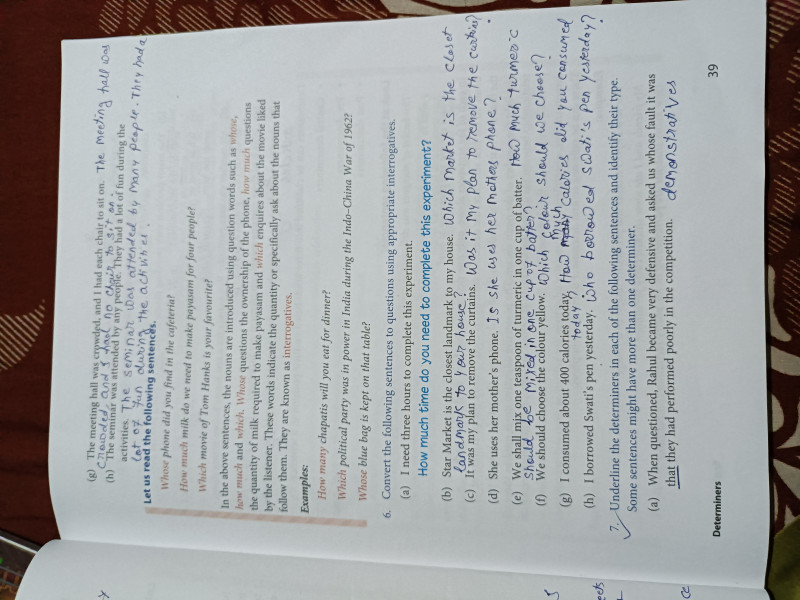 (g) The meeting hall was crowded, and I had each chair to sit on. The meeting hall was
crowded, and I had no chair to sit on.
(h) The seminar was attended by any people. They had a lot of fun during the
activities. The seminar was attended by many people. They had a
lot of fun during the
Let us read the following sentences.
Whose phone did you find in the cafeteria?
How much milk do we need to make payasam for four people?
Which movie of Tom Hanks is your favourite?
In the above sentences, the nouns are introduced using question words such as whose,
how much and which. Whose questions the ownership of the phone, how much questions
the quantity of milk required to make payasam and which enquires about the movie liked
by the listener. These words indicate the quantity or specifically ask about the nouns that
follow them. They are known as interrogatives.
Examples:
How many chapatis will you eat for dinner?
Which political party was in power in India during the Indo–China War of 1962?
Whose blue bag is kept on that table?
6. Convert the following sentences to questions using appropriate interrogatives.
(a) I need three hours to complete this experiment.
How much time do you need to complete this experiment?
(b) Star Market is the closest landmark to my house. Which market is the closet
landmark to your house?
(c) It was my plan to remove the curtains. Was it my plan to remove the curtains?
(d) She uses her mother's phone. Is she uses her mothers phone?
(e) We shall mix one teaspoon of turmeric in one cup of batter. How much turmeric
should be mixed in one cup of batter?
(f) We should choose the colour yellow. Which colour should we choose?
(g) I consumed about 400 calories today. How much calories did you consumed
today
(h) I borrowed Swati's pen yesterday. Who borrowed swati's pen yesterday?
7. Underline the determiners in each of the following sentences and identify their type.
Some sentences might have more than one determiner.
(a) When questioned, Rahul became very defensive and asked us whose fault it was
that they had performed poorly in the competition. demonstratives
Determiners
39